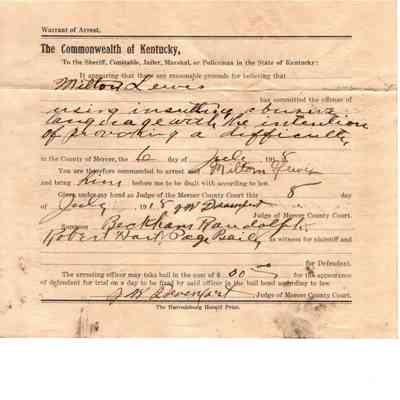 Warrant of Arrest.
The Commonwealth of Kentucky,
To the Sheriff, Constable, Jailer, Marshal, or Policeman in the State of Kentucky:
It appearing that there are reasonable grounds for believing that
Milton Lewis
has committed the offense of
using insulting abusive
language with the intention
of provoking a difficulty
in the County of Mercer, the 6 day of July 1918
You are therefore commanded to arrest said Milton Lewis
and bring him before me to be dealt with according to law.
Given under my hand as Judge of Mercer County Court, this 8 day
of July 1918 J W Davenport
Judge of Mercer County Court.
Summon Beckham Randolph
Robert Page Baily as witness for plaintiff and
for Defendant.
The arresting officer may take bail in the sum of $ 00 for the appearance
of defendant for trial on a day to be fixed by said officer in the bail bond according to law.
J W Davenport, Judge of Mercer County Court.
The Harrodsburg Herald Print.